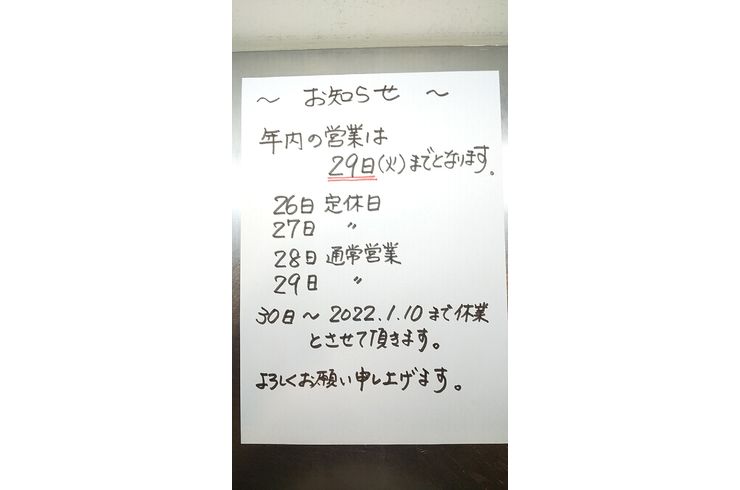 ～ お知らせ ～
年内の営業は
29日(火)までとなります。
26日 定休日
27日 〃
28日 通常営業
29日 〃
30日～2022.1.10まで休業
とさせて頂きます。
よろしくお願い申し上げます。